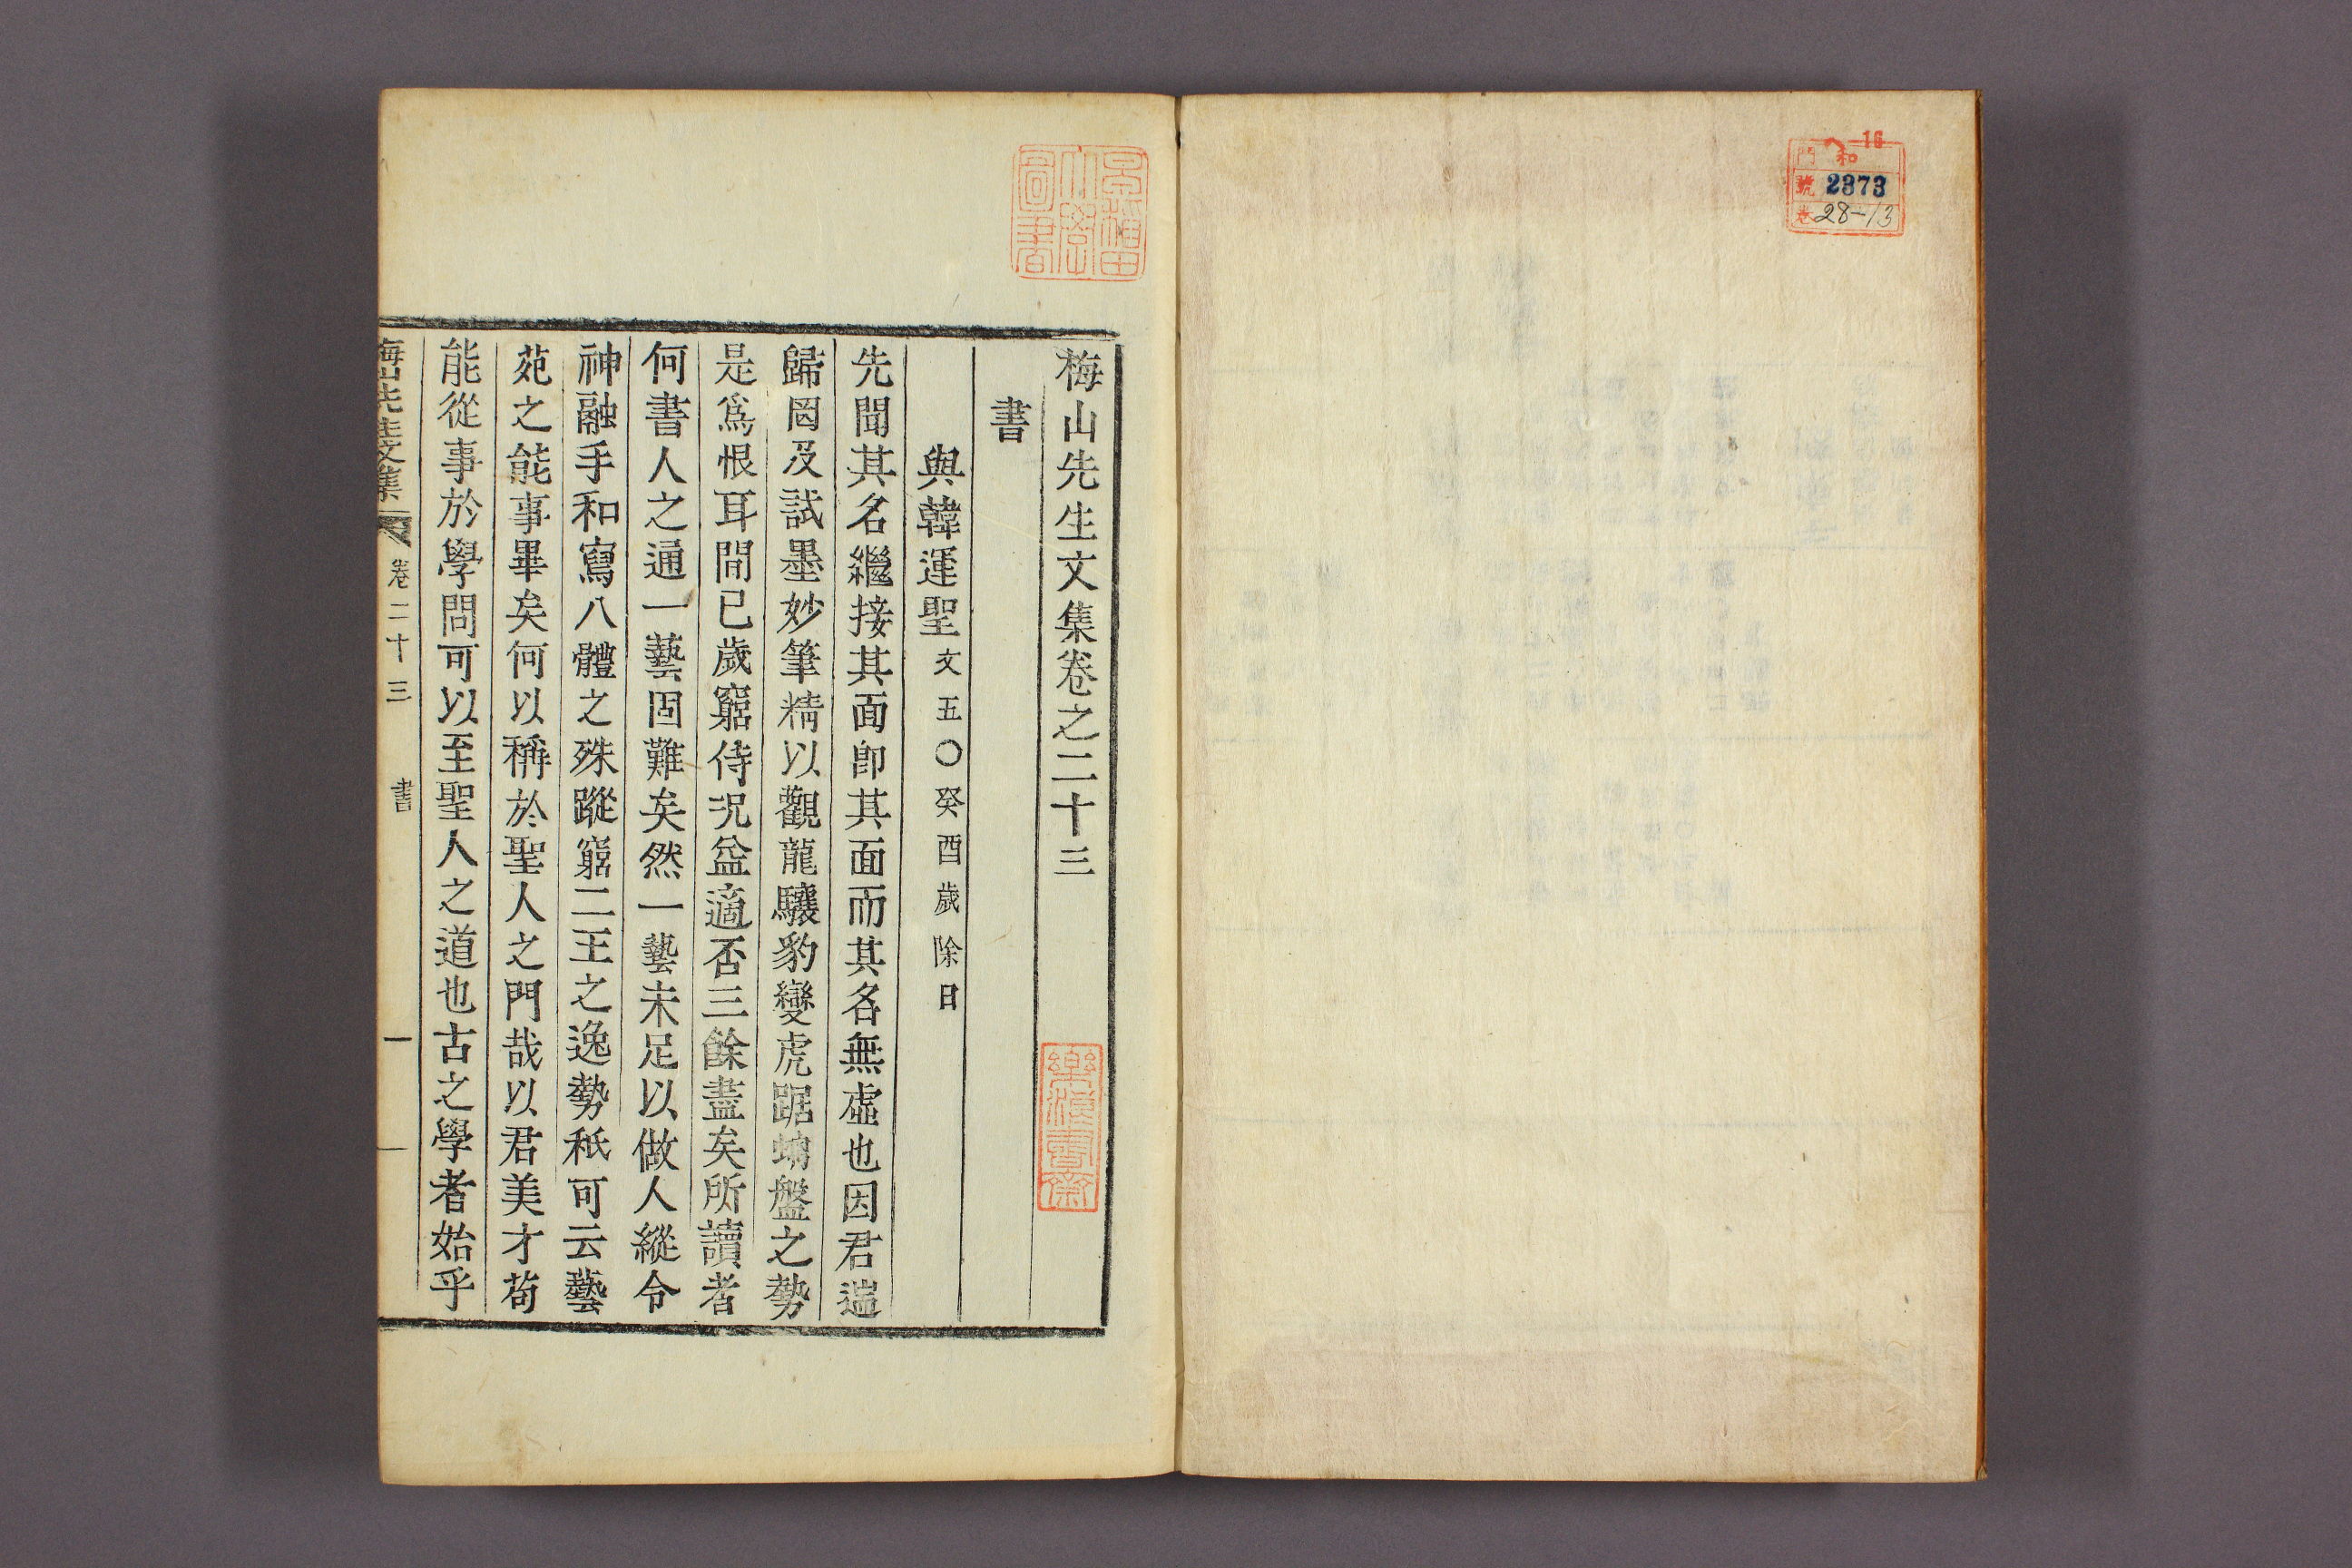 16
和
門
號 2373
卷 28-13
早稲田大學圖書
梅山先生文集卷之二十三
書
與韓運聖文五〇癸酉歲除日
先聞其名繼接其面卽其面而其名無虛也因君遄
歸罔及試墨妙筆精以觀龍驤豹變虎踞螭盤之勢
是爲恨耳間已歲窮侍況益適否三餘盡矣所讀者
何書人之通一藝固難矣然一藝未足以做人縱令
神融手和寫八體之殊蹤窮二王之逸勢秖可云藝
苑之能事畢矣何以稱於聖人之門哉以君美才苟
能從事於學問可以至聖人之道也古之學者始乎
梅山先生文集 卷二十三 書 一